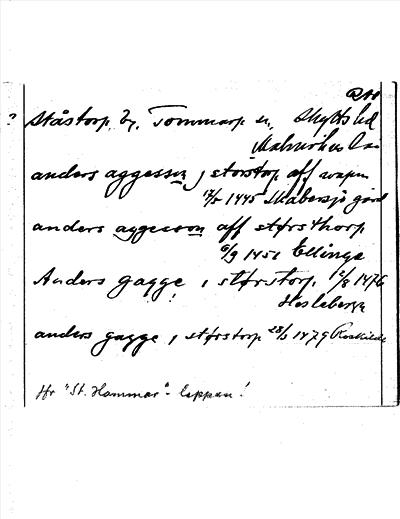 Ståstorp by, Tommarp sn, Skytts hd
Malmöhus län
anders aggessen j størstop aff wapn
17/5 1445 Skabersjö gård
anders aggesson aff størsthorp
6/9 1451 Ellinge
Anders gagge, i størstorp, 12/8 1476
Hesleberga
anders gagge i størstorp 28/3 1479 Roskilde
Hr "St. Hammar"-lappen!